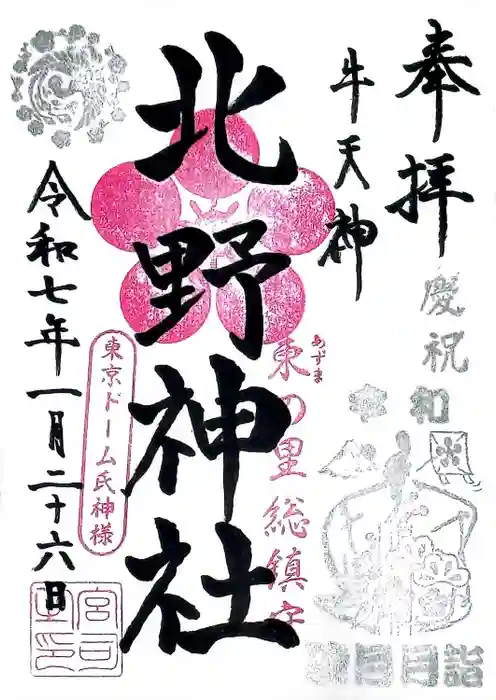 奉拝
慶祝
令和
牛天神
北野神社
あずま
東の里総鎮守
東京ドーム氏神様
令和七年一月二十六日
宮司